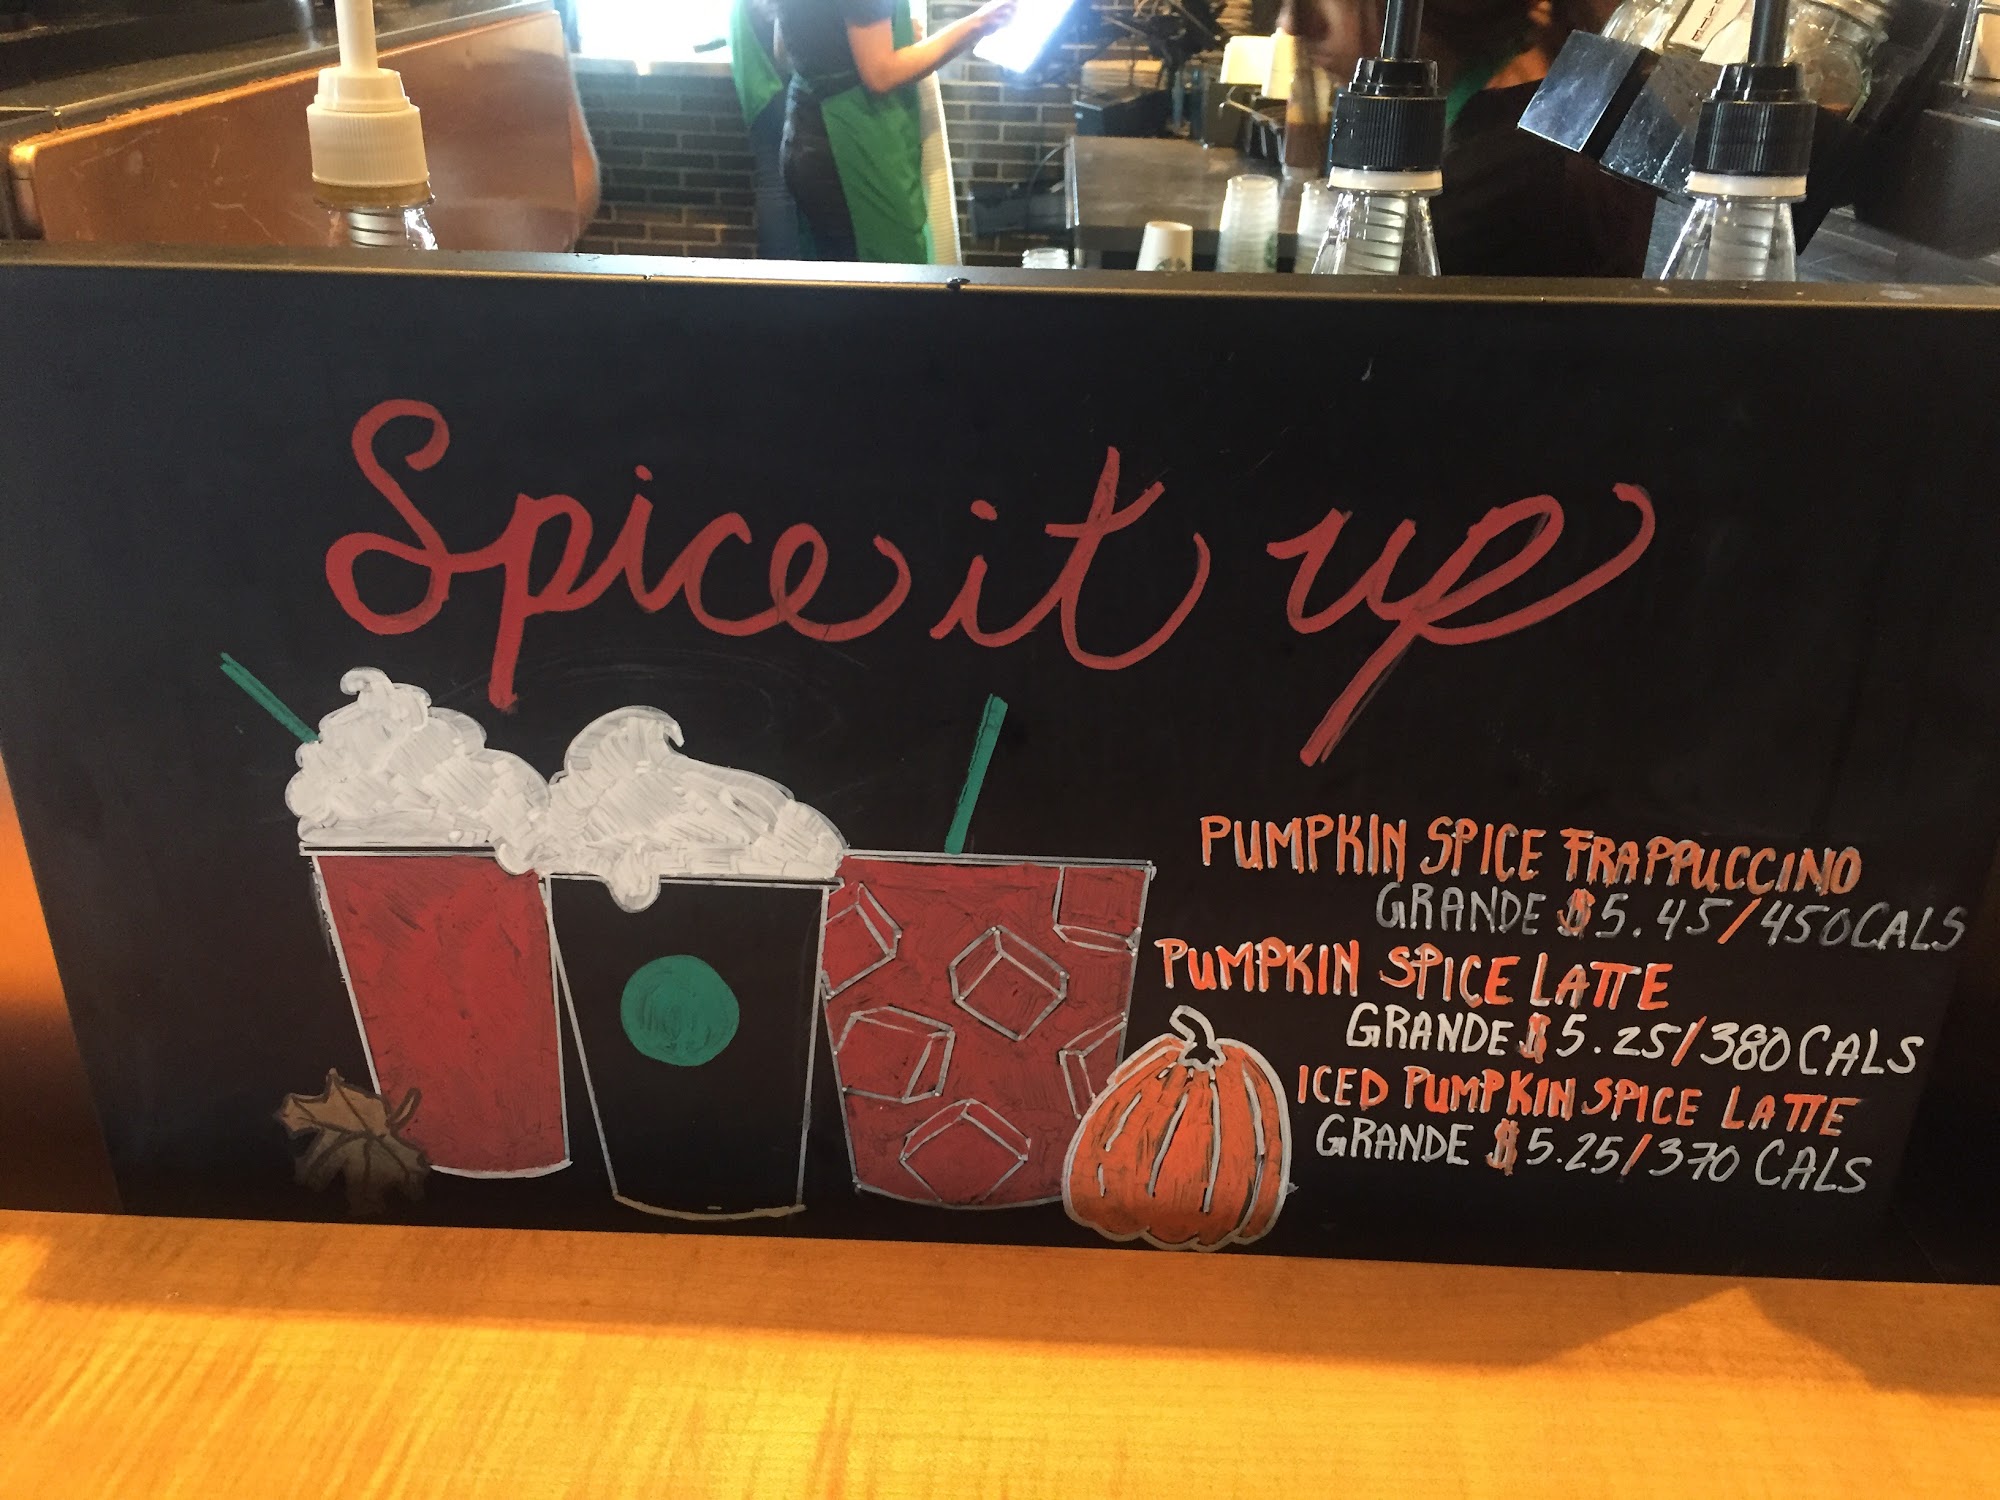 Spice it up
PUMPKIN SPICE FRAPPUCCINO
GRANDE $5.45/450CALS
PUMPKIN SPICE LATTE
GRANDE $5.25/380CALS
ICED PUMPKIN SPICE LATTE
GRANDE $5.25/370 CALS